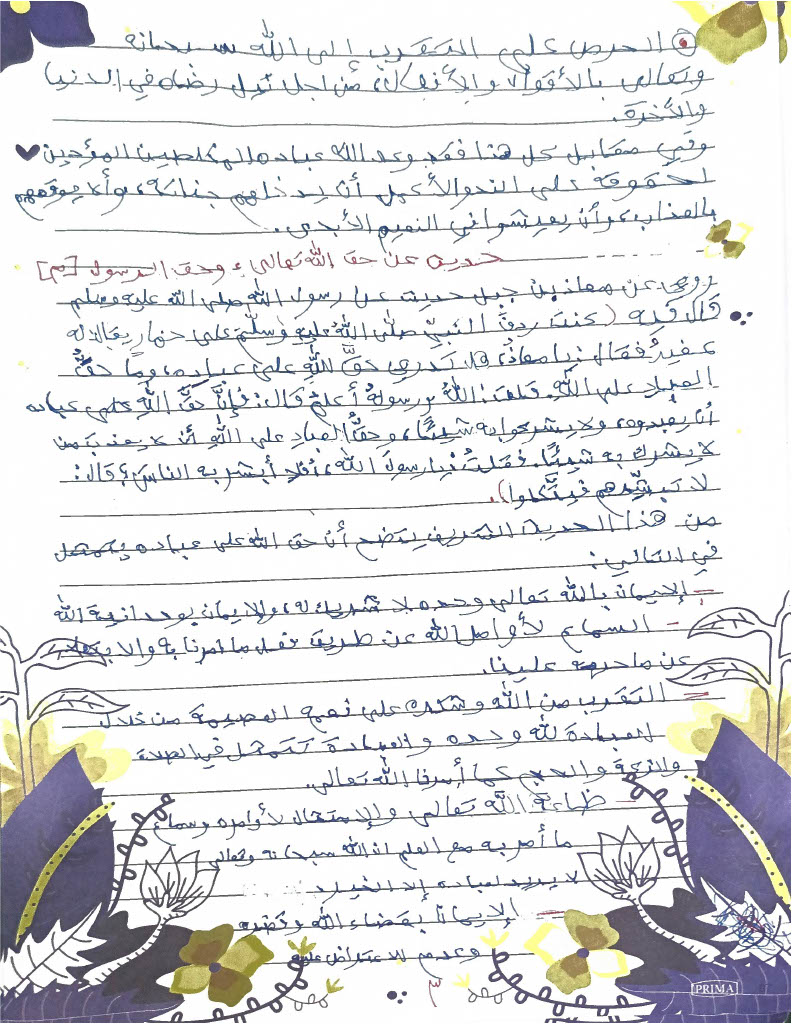 الحرص على التقرب الى الله سبحانه
وتعالى بالأقوال والأفعال، من اجل نيل رضاه في الدنيا
والأخرة.
وفي مقابل كل هذا فقد وعد الله عباده المخلصين المؤدين
لحقوقه على النحو الأكمل أن يدخلهم جناته، وألا يوقعهم
بالعذاب، وأن يعيشوا في النعيم الأبدي.
حديث عن حق الله تعالى، وحق الرسول [م]
روي عن معاذ بن جبل حديث عن رسول الله صلى الله عليه وسلم
قال فيه (كنت ردف النبيّ صلى الله عليه وسلم على حمار يقال له
عفير فقال: يا معاذ، هل تدري حقَّ الله على عباده، وما حقُّ
العباد على الله. قلت: الله ورسوله أعلم قال: فإنَّ حقَّ الله على عباده
أن يعبدوه، ولا يشركوا به شيئًا، وحقُّ العباد على الله أن لا يعذب من
لا يشرك به شيئًا. فقلت: يا رسول الله، أفلا أبشر به الناس؟ قال:
لا تبشّرهم فيتَّكلوا).
من هذا الحديث الشريف يتضح أن حق الله على عباده يتمثل
في التالي:
= الإيمان بالله تعالى وحده لا شريك له، والإيمان بوحدانية الله
- السماع لأوامر الله عن طريق فعل ما أمرنا به والابتعاد
عن ما حرمه علينا.
= التقرب من الله وشكره على نعمه العظيمة من خلال
العبادة لله وحده والعبادة تتمثل في الصلاة
والزكاة والحج كما أمرنا الله تعالى.
- طاعة الله تعالى والإمتثال لأوامره وسماع
ما أمر به مع العلم ان الله سبحانه وتعالى
لا يريد لعباده إلا الخير.
= الإيمان بقضاء الله وقدره
وعدم الاعتراض عليه
٣
PRIMA